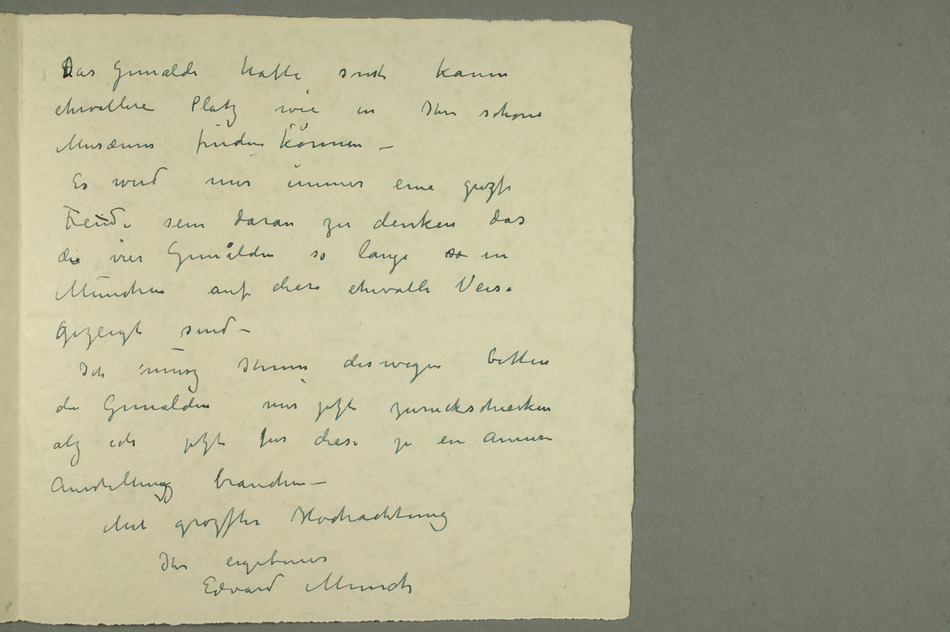 Das Gemälde hatte sonst kaum
ehrvollere Platz wie in Ihre schöne
Musæums finden können –
Es wird mir immer eine grozse
Freude sein daran zu denken das
die vier Gemälden so lange in
München auf diese ehrvolle Veise
gezeigt sind –
Ich muszs Ihnen deswegen bitten
die Gemalden mir jetzt zurückschicken
alz ich jetzt für diese zu en
Ausstellung brauchen –
Mit grozster Hochachtung
Ihr ergebener
Edvard Munch